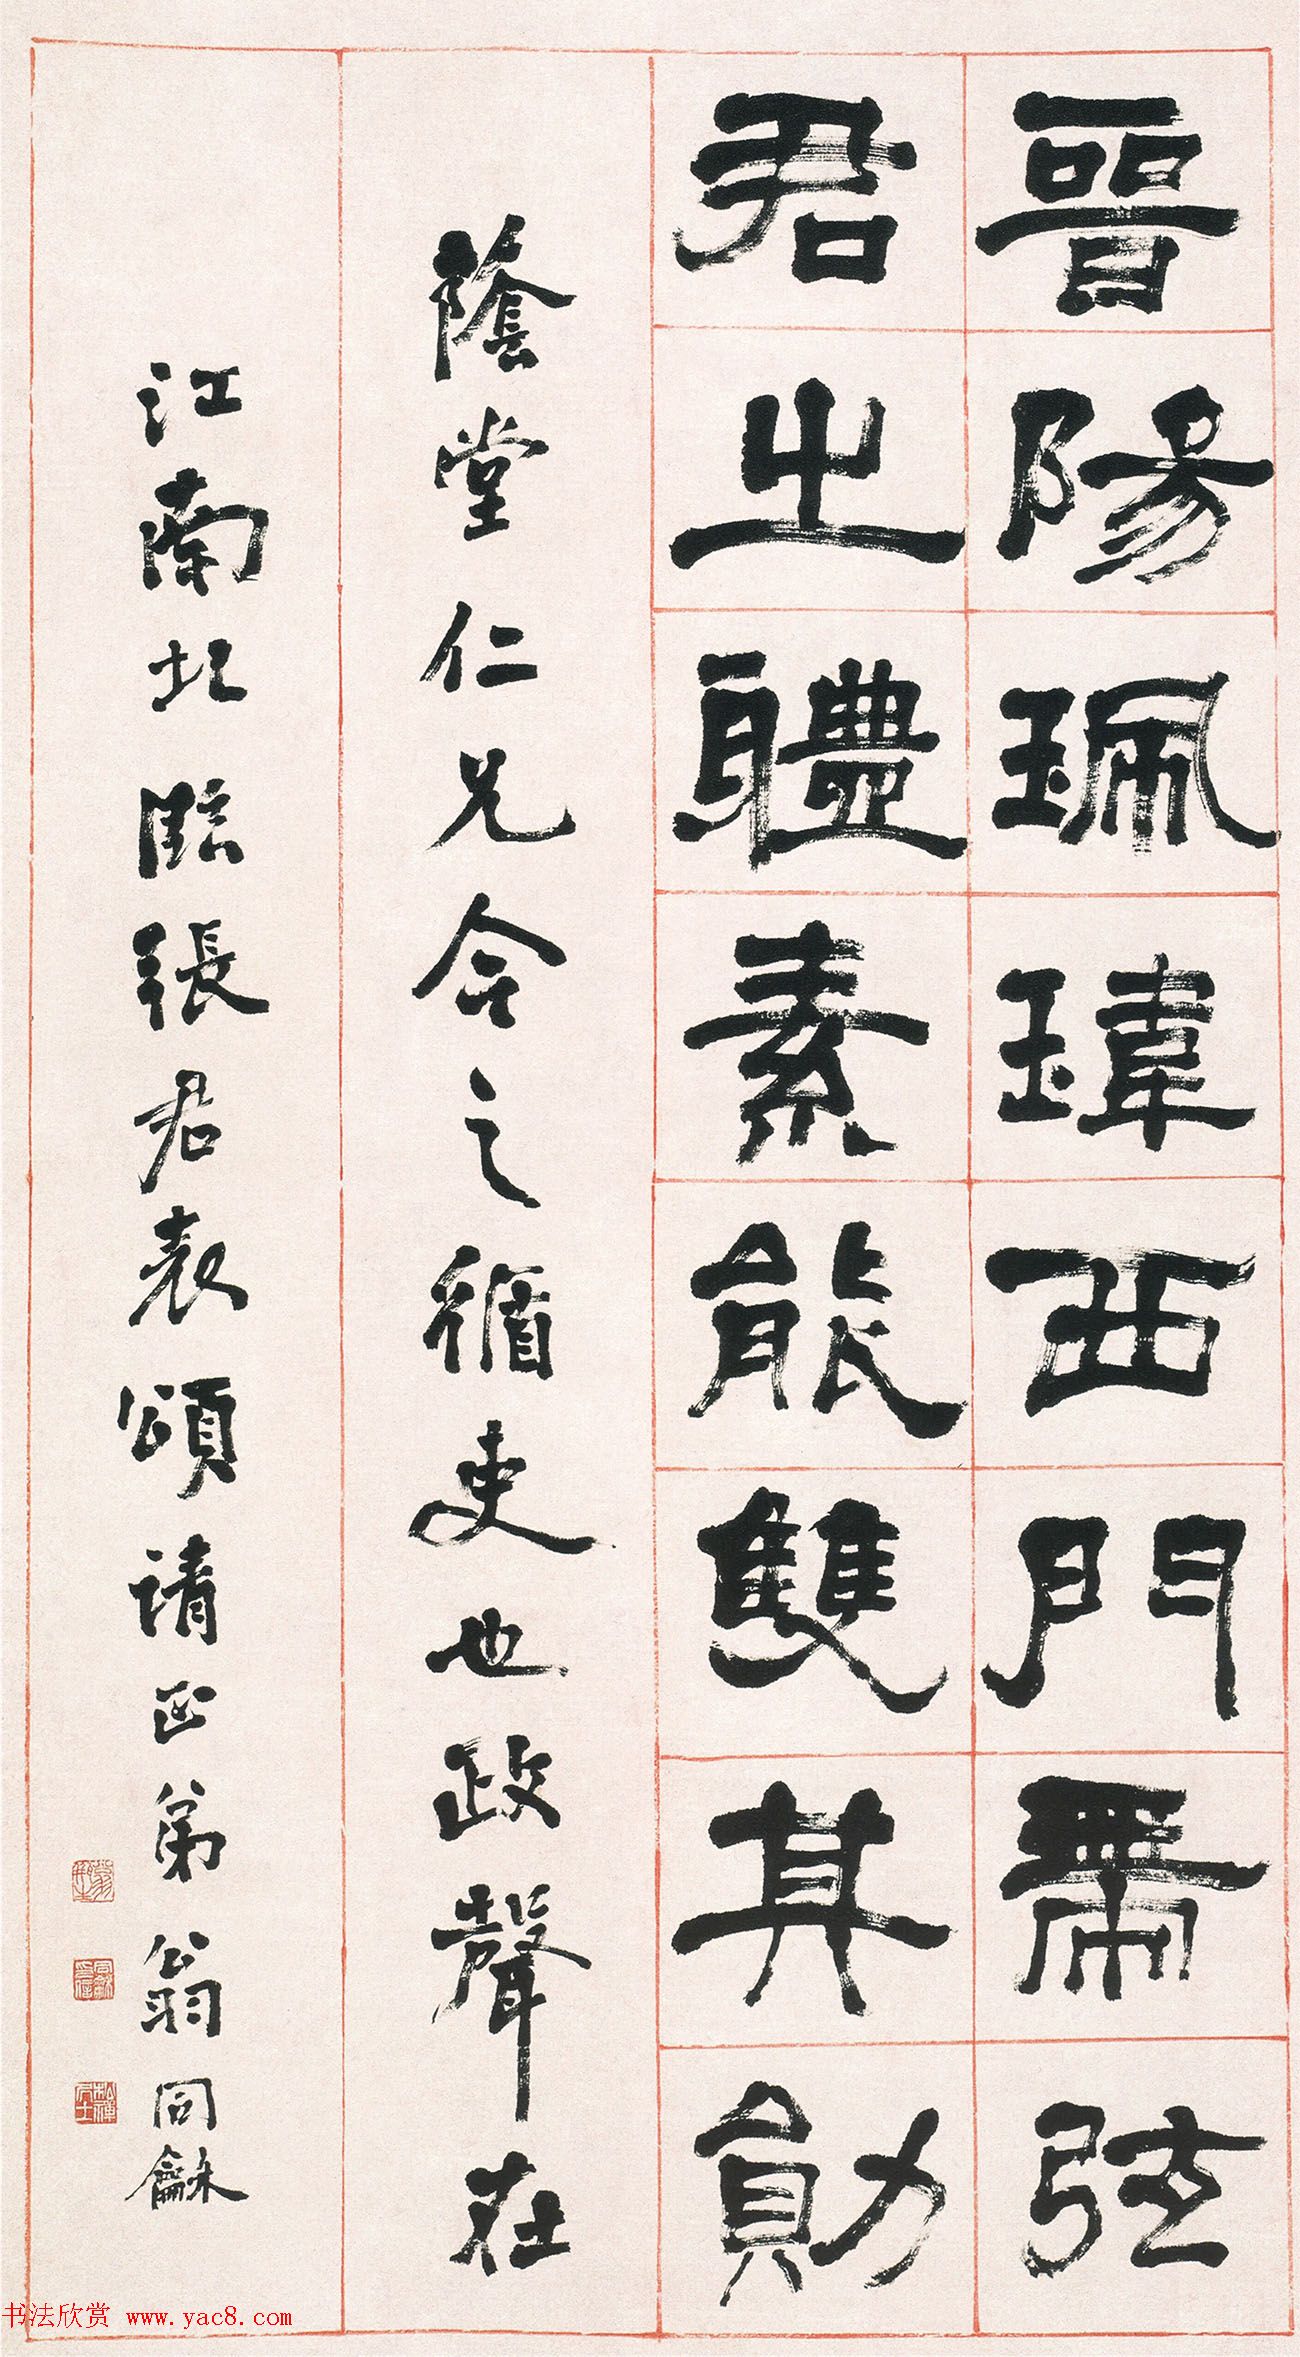 晉陽珮瑋西門帶弦
君之體素能雙其勛
蔭堂仁兄今之循吏也政聲在
江南北臨張君表頌請正弟翁同龢
翁
同龢印信
松禪居士
书法欣赏 www.yac8.com